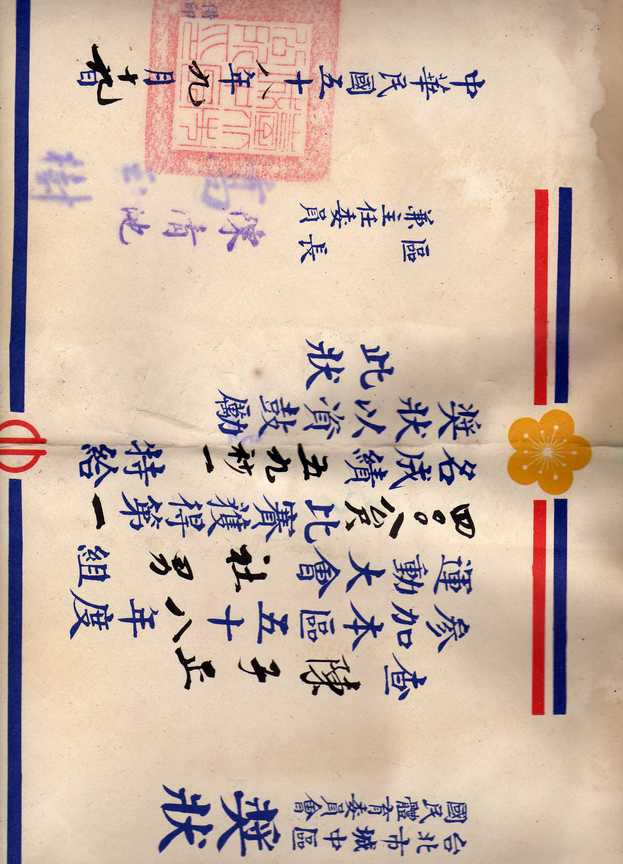 台北市城中區
國民體育委員會
獎狀
查陳子正
參加本區五十八年度
運動大會社男組
四〇〇公尺比賽獲得第一
名成績五九秒一特給
獎狀以資鼓勵
此狀
區長
兼主任委員
中華民國五十八年九月十九日